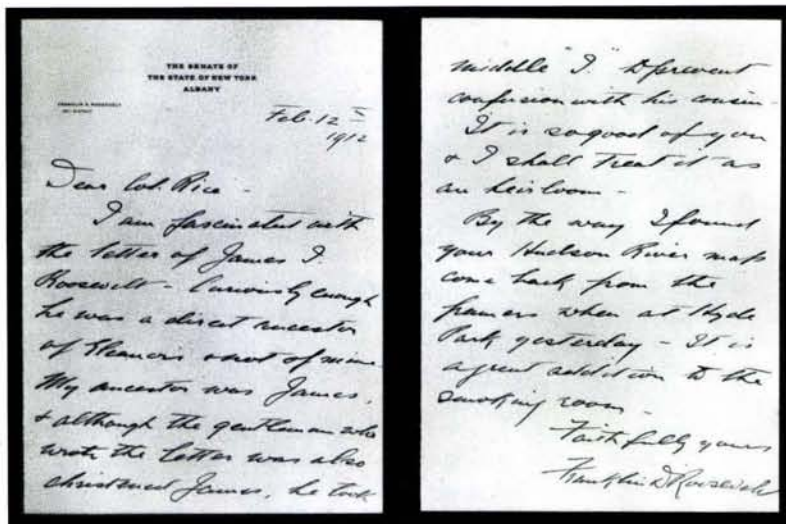 THE SENATE OF
THE STATE OF NEW YORK
ALBANY
FRANKLIN D. ROOSEVELT
Feb. 12
1912
Dear Col. Rice -
I am fascinated with
the letter of James I
Roosevelt - Curiously enough
he was a direct ancestor
of Eleanor's & not of mine
My ancestor was James,
& although the gentleman who
wrote the letter was also
christened James, he took
middle "I." to prevent
confusion with his cousin -
It is so good of you
& I shall treat it as
an heirloom -
By the way I found
your Hudson River map
come back from the
framers when at Hyde
Park yesterday - It is
a great addition to the
smoking room -
Faithfully yours
Franklin D Roosevelt